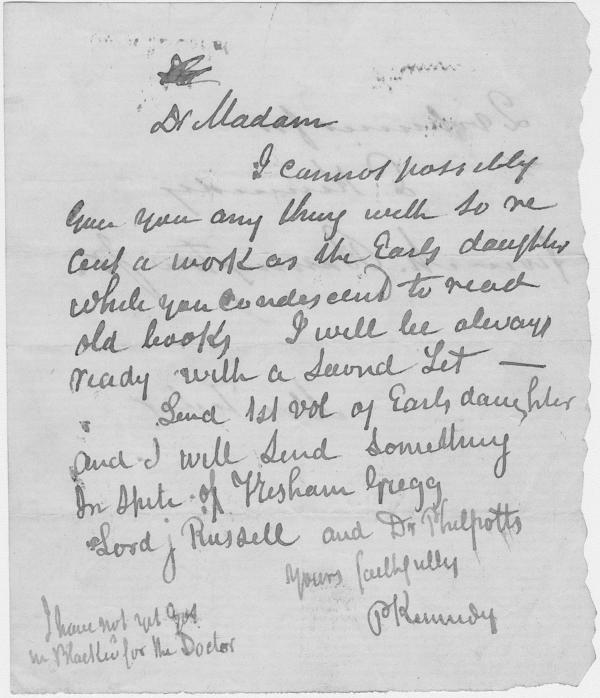 Dr Madam
I cannot possibly
give you any thing with so re
cent a work as the Earls daughter
while you condescend to read
old books I will be always
ready with a second Set —
Send 1st vol of Earls daughter
and I will send something
In spite of Tresham Gregg
Lord j Russell and Dr Philpotts
Yours faithfully
PKennedy
I have not yet got
in for the Doctor